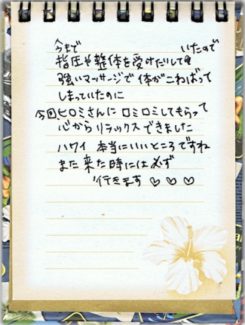 今まで いたので
指圧や整体を受けたりしても
強いマッサージで体がこわばって
しまっていたのに
今回ヒロミさんにロミロミしてもらって
心からリラックスできました
ハワイ 本当にいいところですね
また来た時には必ず
行きます♡♡♡